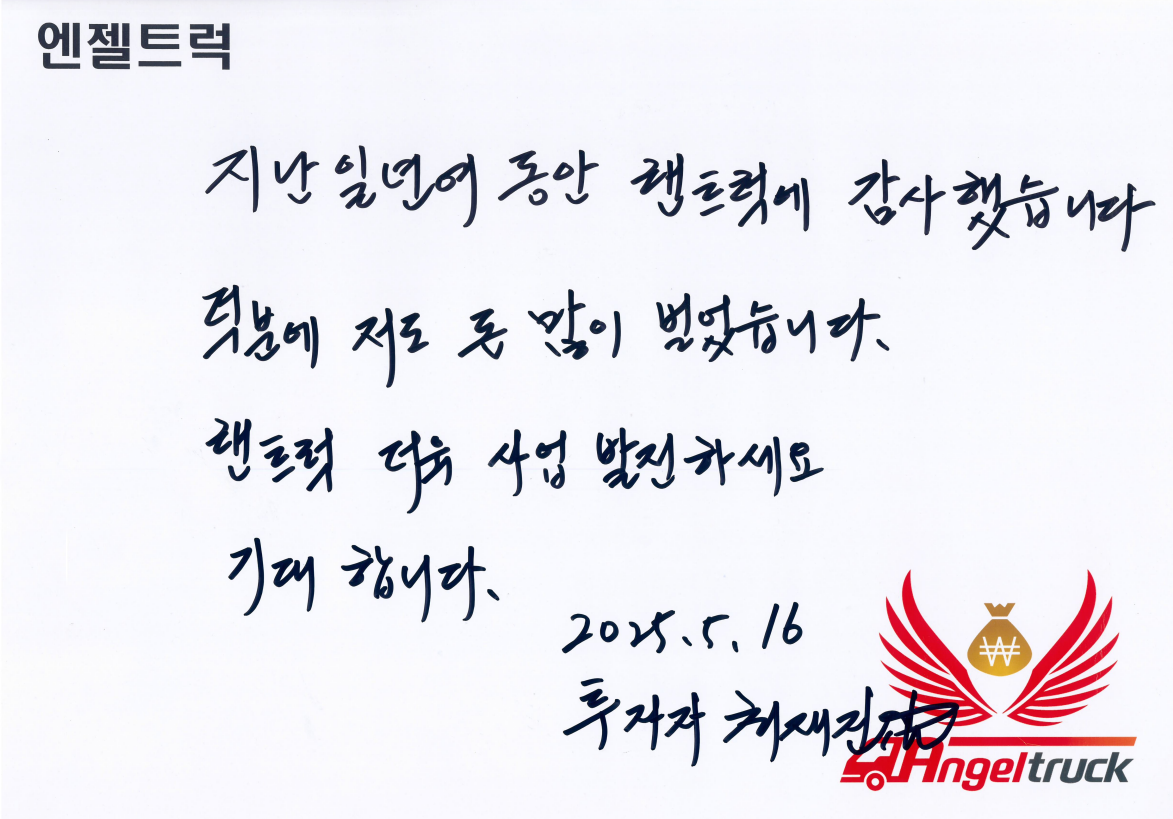 엔젤트럭
지난 일년여 동안 랜트럭에 감사했습니다
덕분에 저도 돈 많이 벌었습니다.
랜트럭 더욱 사업 발전하세요
기대 합니다.
2025.5.16
투자자 허재진
₩
Angeltruck